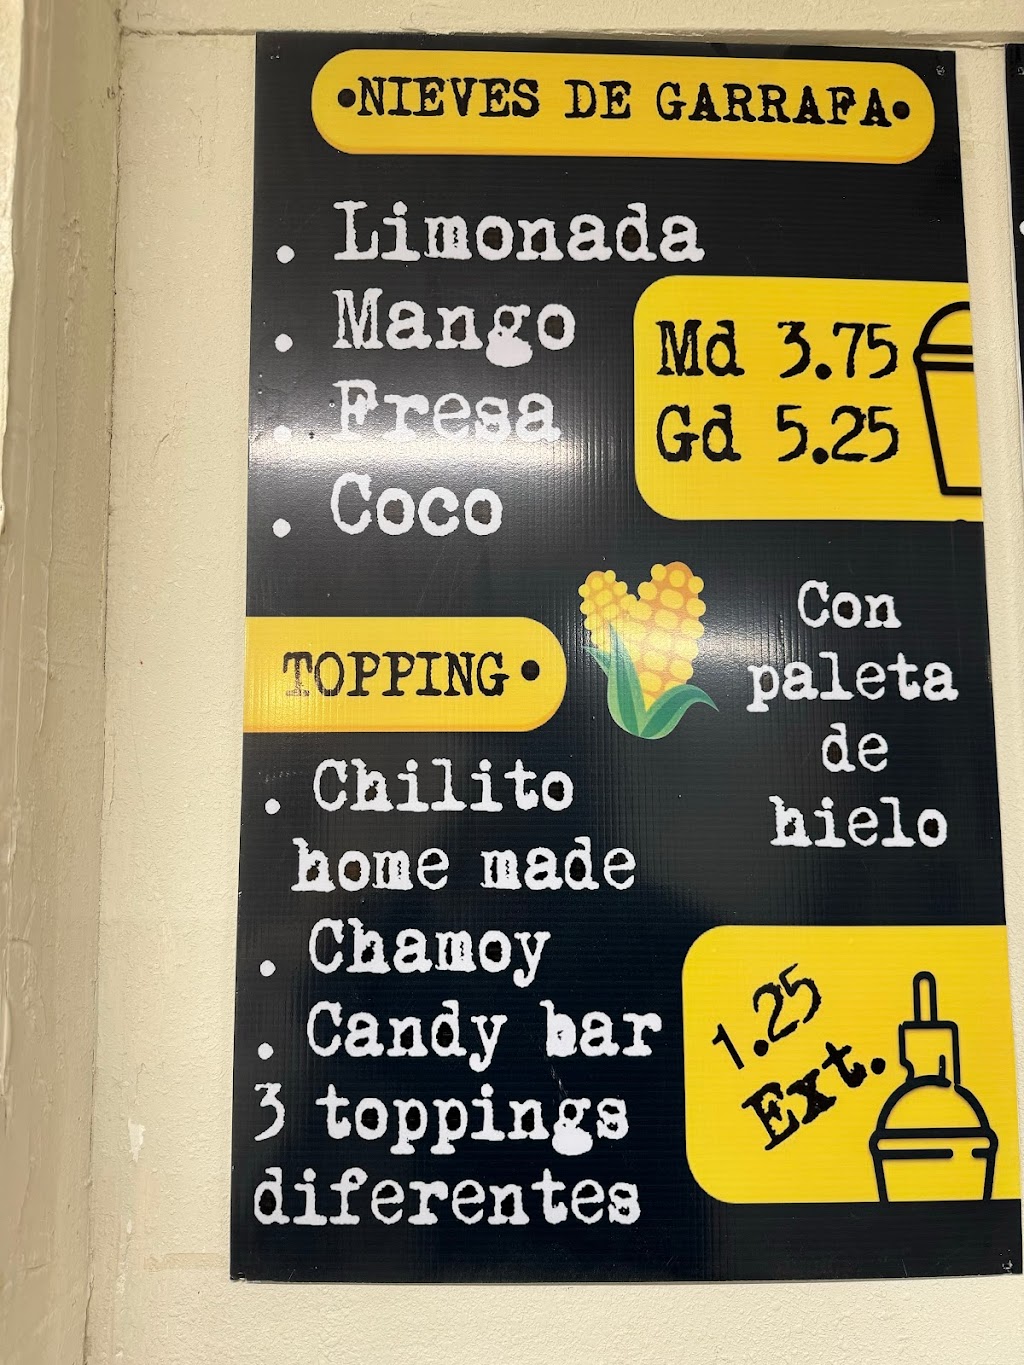 •NIEVES DE GARRAFA•
. Limonada
. Mango
. Fresa
. Coco
Md 3.75
Gd 5.25
Con
paleta
de
hielo
TOPPING•
. Chilito
home made
. Chamoy
. Candy bar
3 toppings
diferentes
1.25
Ext.